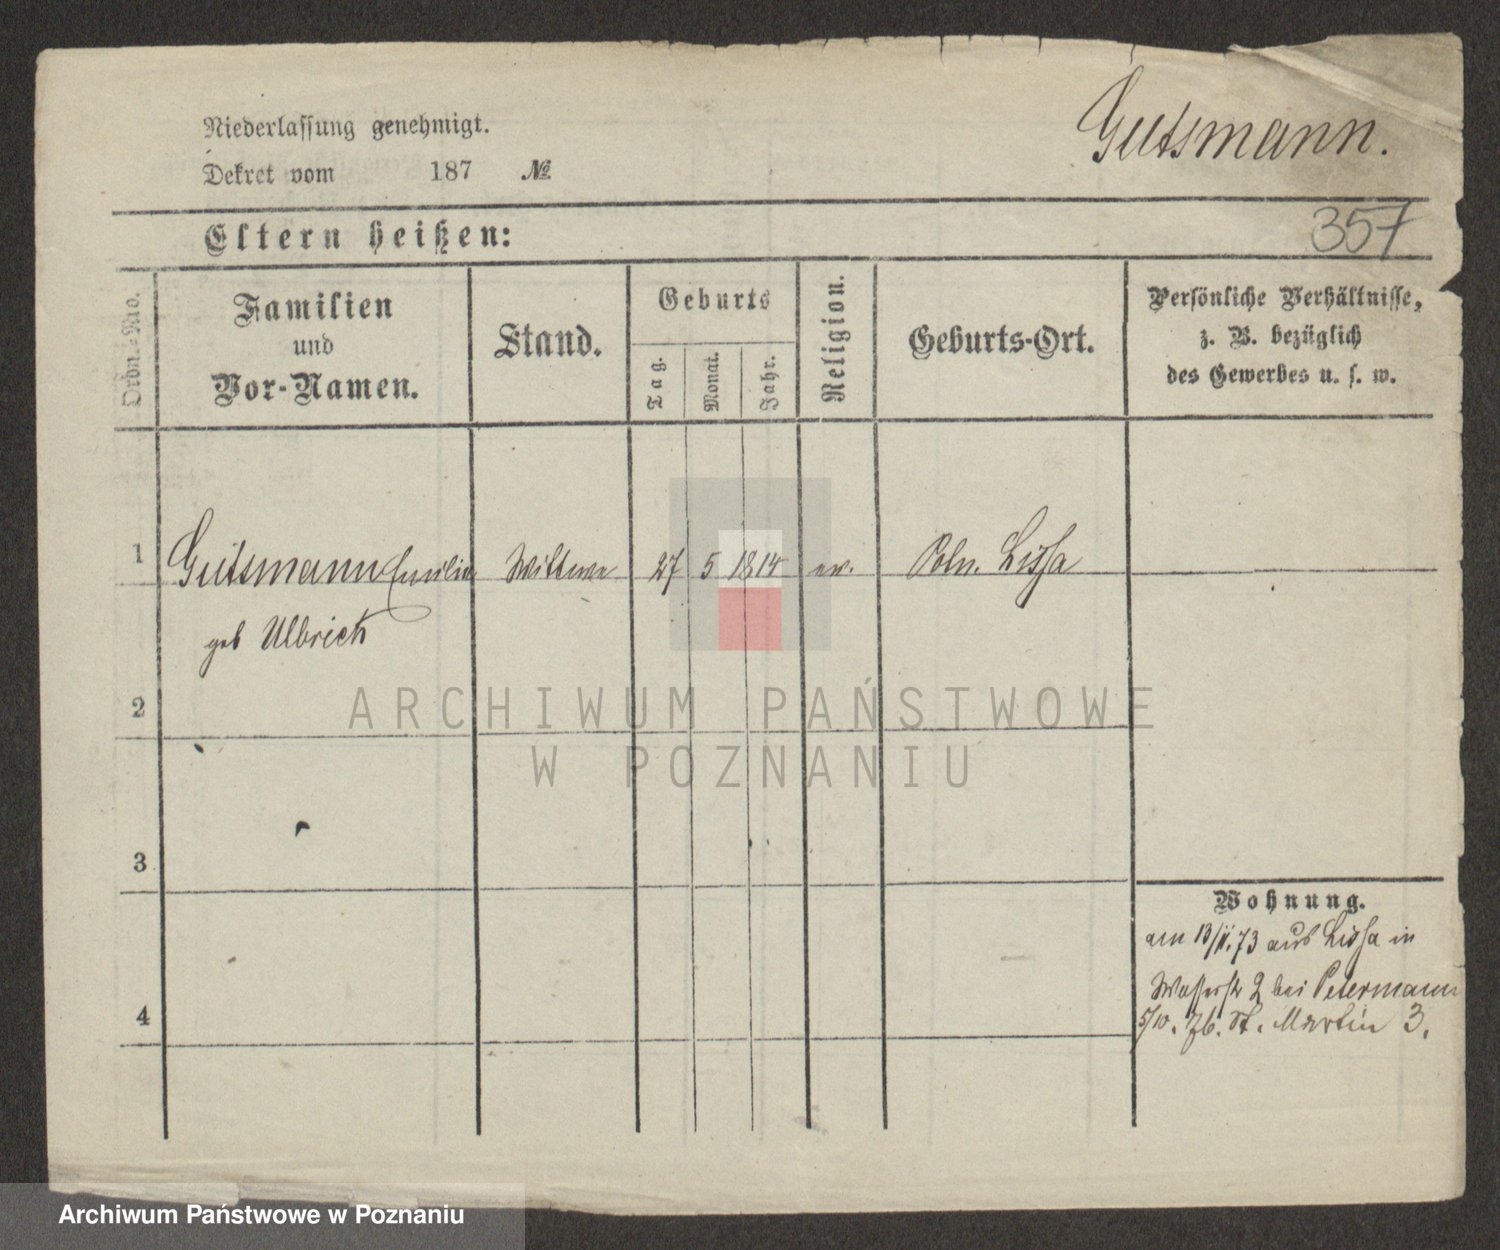 Niederlassung genehmigt.
Gutsmann.
Dekret vom 187 №
357
Eltern heißen:
Ordn.-No.
Familien
und
Vor-Namen.
Stand.
Geburts
Tag.
Monat.
Jahr.
Religion.
Geburts-Ort.
Persönliche Verhältnisse,
z. B. bezüglich
des Gewerbes u. s. w.
1 Gutsmann Emilie Wittwe 27 5 1814 ev. Poln. Lissa
geb Ulbrich
2
ARCHIWUM PAŃSTWOWE
W POZNANIU
3
Wohnung.
am 13/11.73 aus Lissa in
Wasserstr 2 bei Petermann
4
5/10. 76. St. Martin 3.
Archiwum Państwowe w Poznaniu